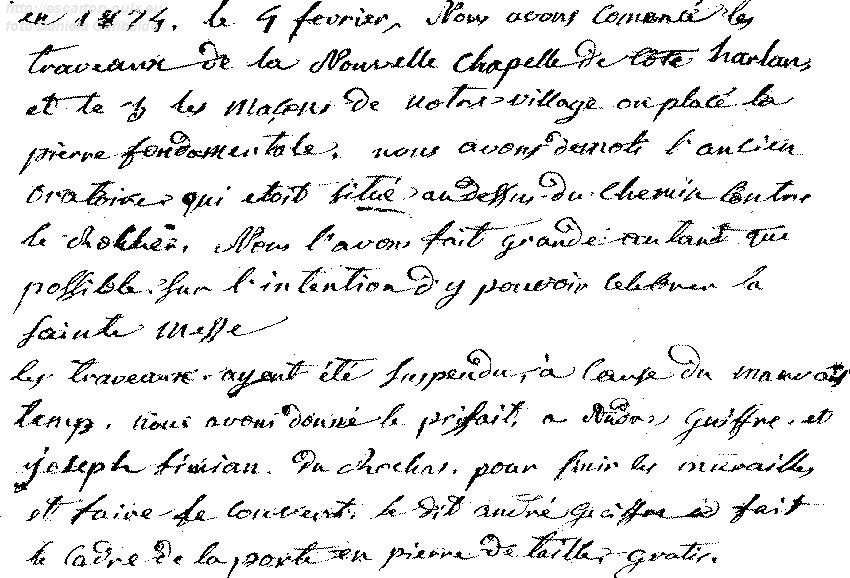 en 1874. le 9 fevrier, Nous avons comencé les
traveaux de la Nouvelle Chapelle de Cote harlan,
et le les maçons de notre village on placé la
pierre fondamentale. nous avons demoli l'ancien
oratoire qui etoit situé au dessus du chemin Contre
le Nous l'avons fait grande autant que
possible. Sur l'intention d'y pouvoir Celebrer la
Sainte Messe
les traveaux ayent été Suspendu, à Cause du mauvais
temp, nous avons donné le prifait, a André Guiffre, et
joseph Simian. du pour finir les murailles
et faire le Couvert. le dit andré Guiffre à fait
le Cadre de la porte en pierre de taille, gratis.